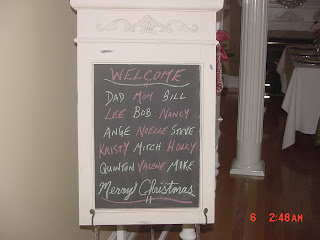 WELCOME
DAD MOM BILL
LEE BOB NANCY
ANGE NOELLE STEVE
KRISTY MITCH HOLLY
QUINTON VALENE MIKE
Merry Christmas
6 2:48AM